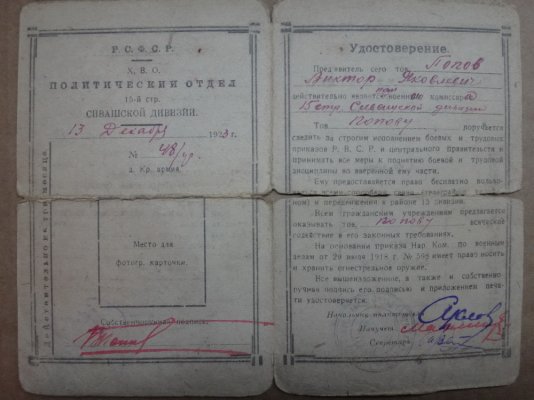 Р.С.Ф.С.Р.
Х.В.О.
ПОЛИТИЧЕСКИЙ ОТДЕЛ
15-й стр.
СИВАШСКОЙ ДИВИЗИИ.
13 Декабря 1923 г.
№ 48/
д. Кр. армия.
Место для
фотогр. карточки.
Собственноручная подпись.
Действительно три месяца.
Удостоверение.
Пред'явитель сего тов. Попов
Виктор Яковлевич
действительно является военным комиссаром
15 стр. Сивашской дивизии
Тов. Попову поручается
следить за строгим исполнением боевых и трудовых
приказов Р.В.С.Р. и центрального правительств и
принимать все меры к поднятию боевой и трудовой
дисциплины во вверенной ему части.
Ему предоставляется право бесплатно пользо-
ном) и передвижения в районе 15 дивизии.
Всем гражданским учреждениям предлагается
оказывать тов. Попову всяческое
содействие в его законных требованиях.
На основании приказа Нар. Ком. по военным
делам от 29 июля 1918 г. № 595 имеет право носить
и хранить огнестрельное оружие.
Все вышеизложенное, а также и собственно-
ручная подпись его подписью и приложением печа-
ти удостоверяется.
Начальник политотдела
Секретарь